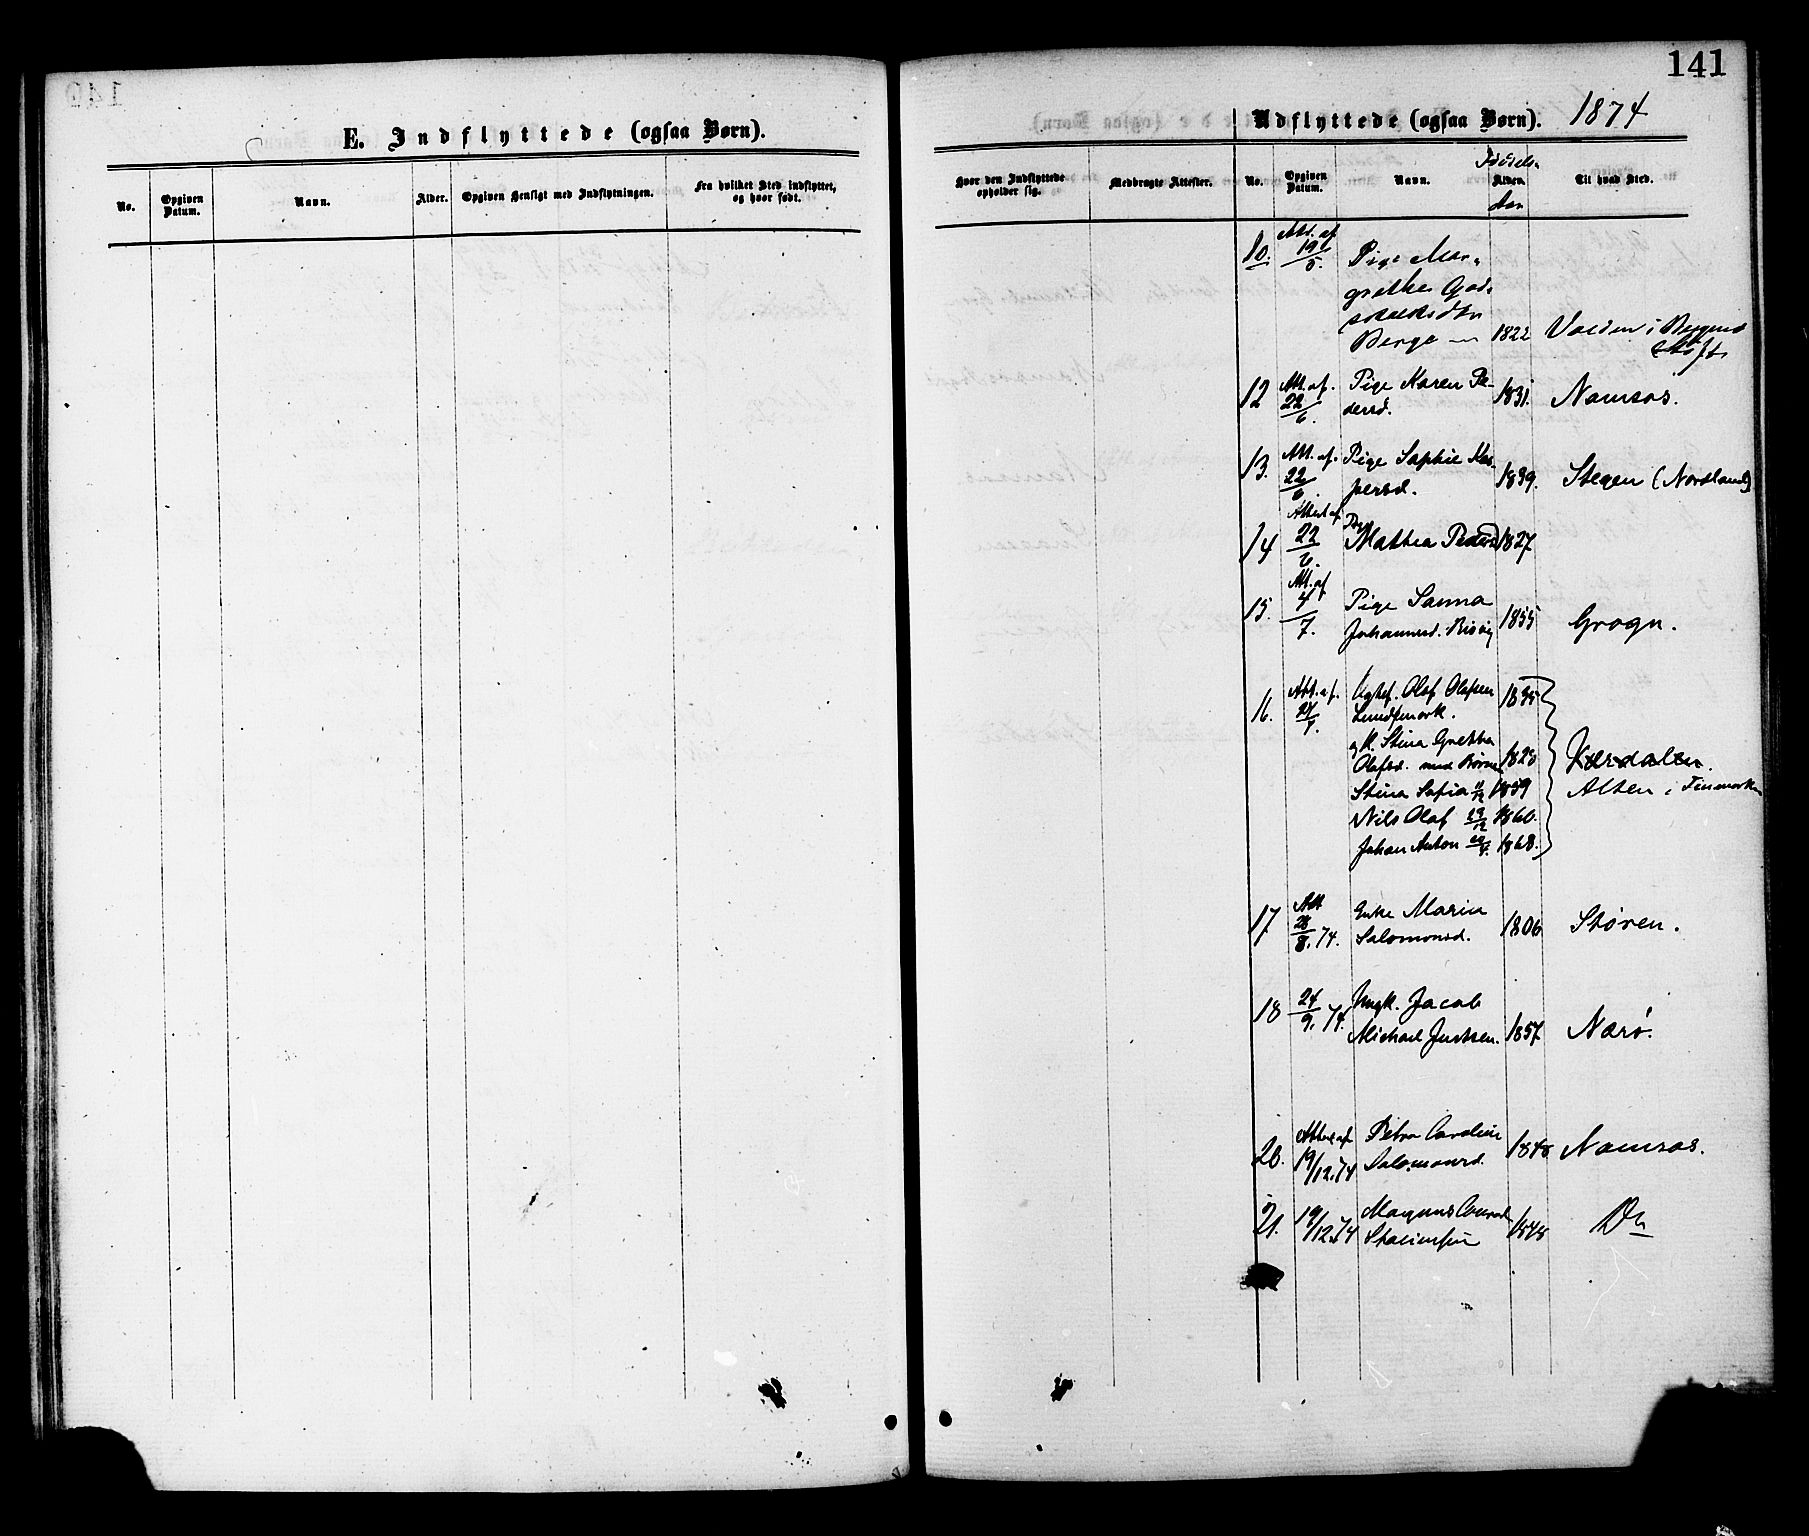 E. Indflyttede (ogsaa Børn).
No.
Opgiven Datum.
Navn.
Alder.
Opgiven Hensigt med Indflytningen.
Fra hvilket Sted indflyttet, og hvor født.
141
Udflyttede (ogsaa Børn). 1874
Hvor den Indflyttede opholder sig.
Medbragte Attester.
No.
Opgiven Datum.
Navn.
Fødsels-
Alder.
Aar
Til hvad Sted.
10. Att. af 19/5. Pige Mar-
grethe God-
Berge 1822 Volden i Bergens
Stift
12 Att. af 22/6. Pige Karen Pe-
dersd. 1831. Namsos.
13. Att. af 22/6. Pige Sophie Kas-
persd. 1839. Stegen (Nordland)
14 Attest af 22/6. Pige
Mathea Pedersd 1827
15. Att. af 4/7. Pige Sanna
Johannesd. 1855 Grogn.
16. Att. af 27/7. Ugtef. Olaf Olafsen 1835
Lundfmark.
og K. Stina Gretha
Olafsd. med Børn 1828 Værdalen.
Stina Sofia 11/12 1859 Alten i Finmarken
Nils Olaf 29/12 1860.
Johan Anton 1868.
17 Att 28/8. 74. Enke Maria
Salomonsd. 1806 Støren.
18 24/9. 74. Ungk. Jacob
Michael Justsen. 1857 Nærø.
20. Attest af 19/12.74 Petra Caroline
Salomonsd. 1848 Namsos.
21. 19/12.74 Magnus Conrad
1848 Do